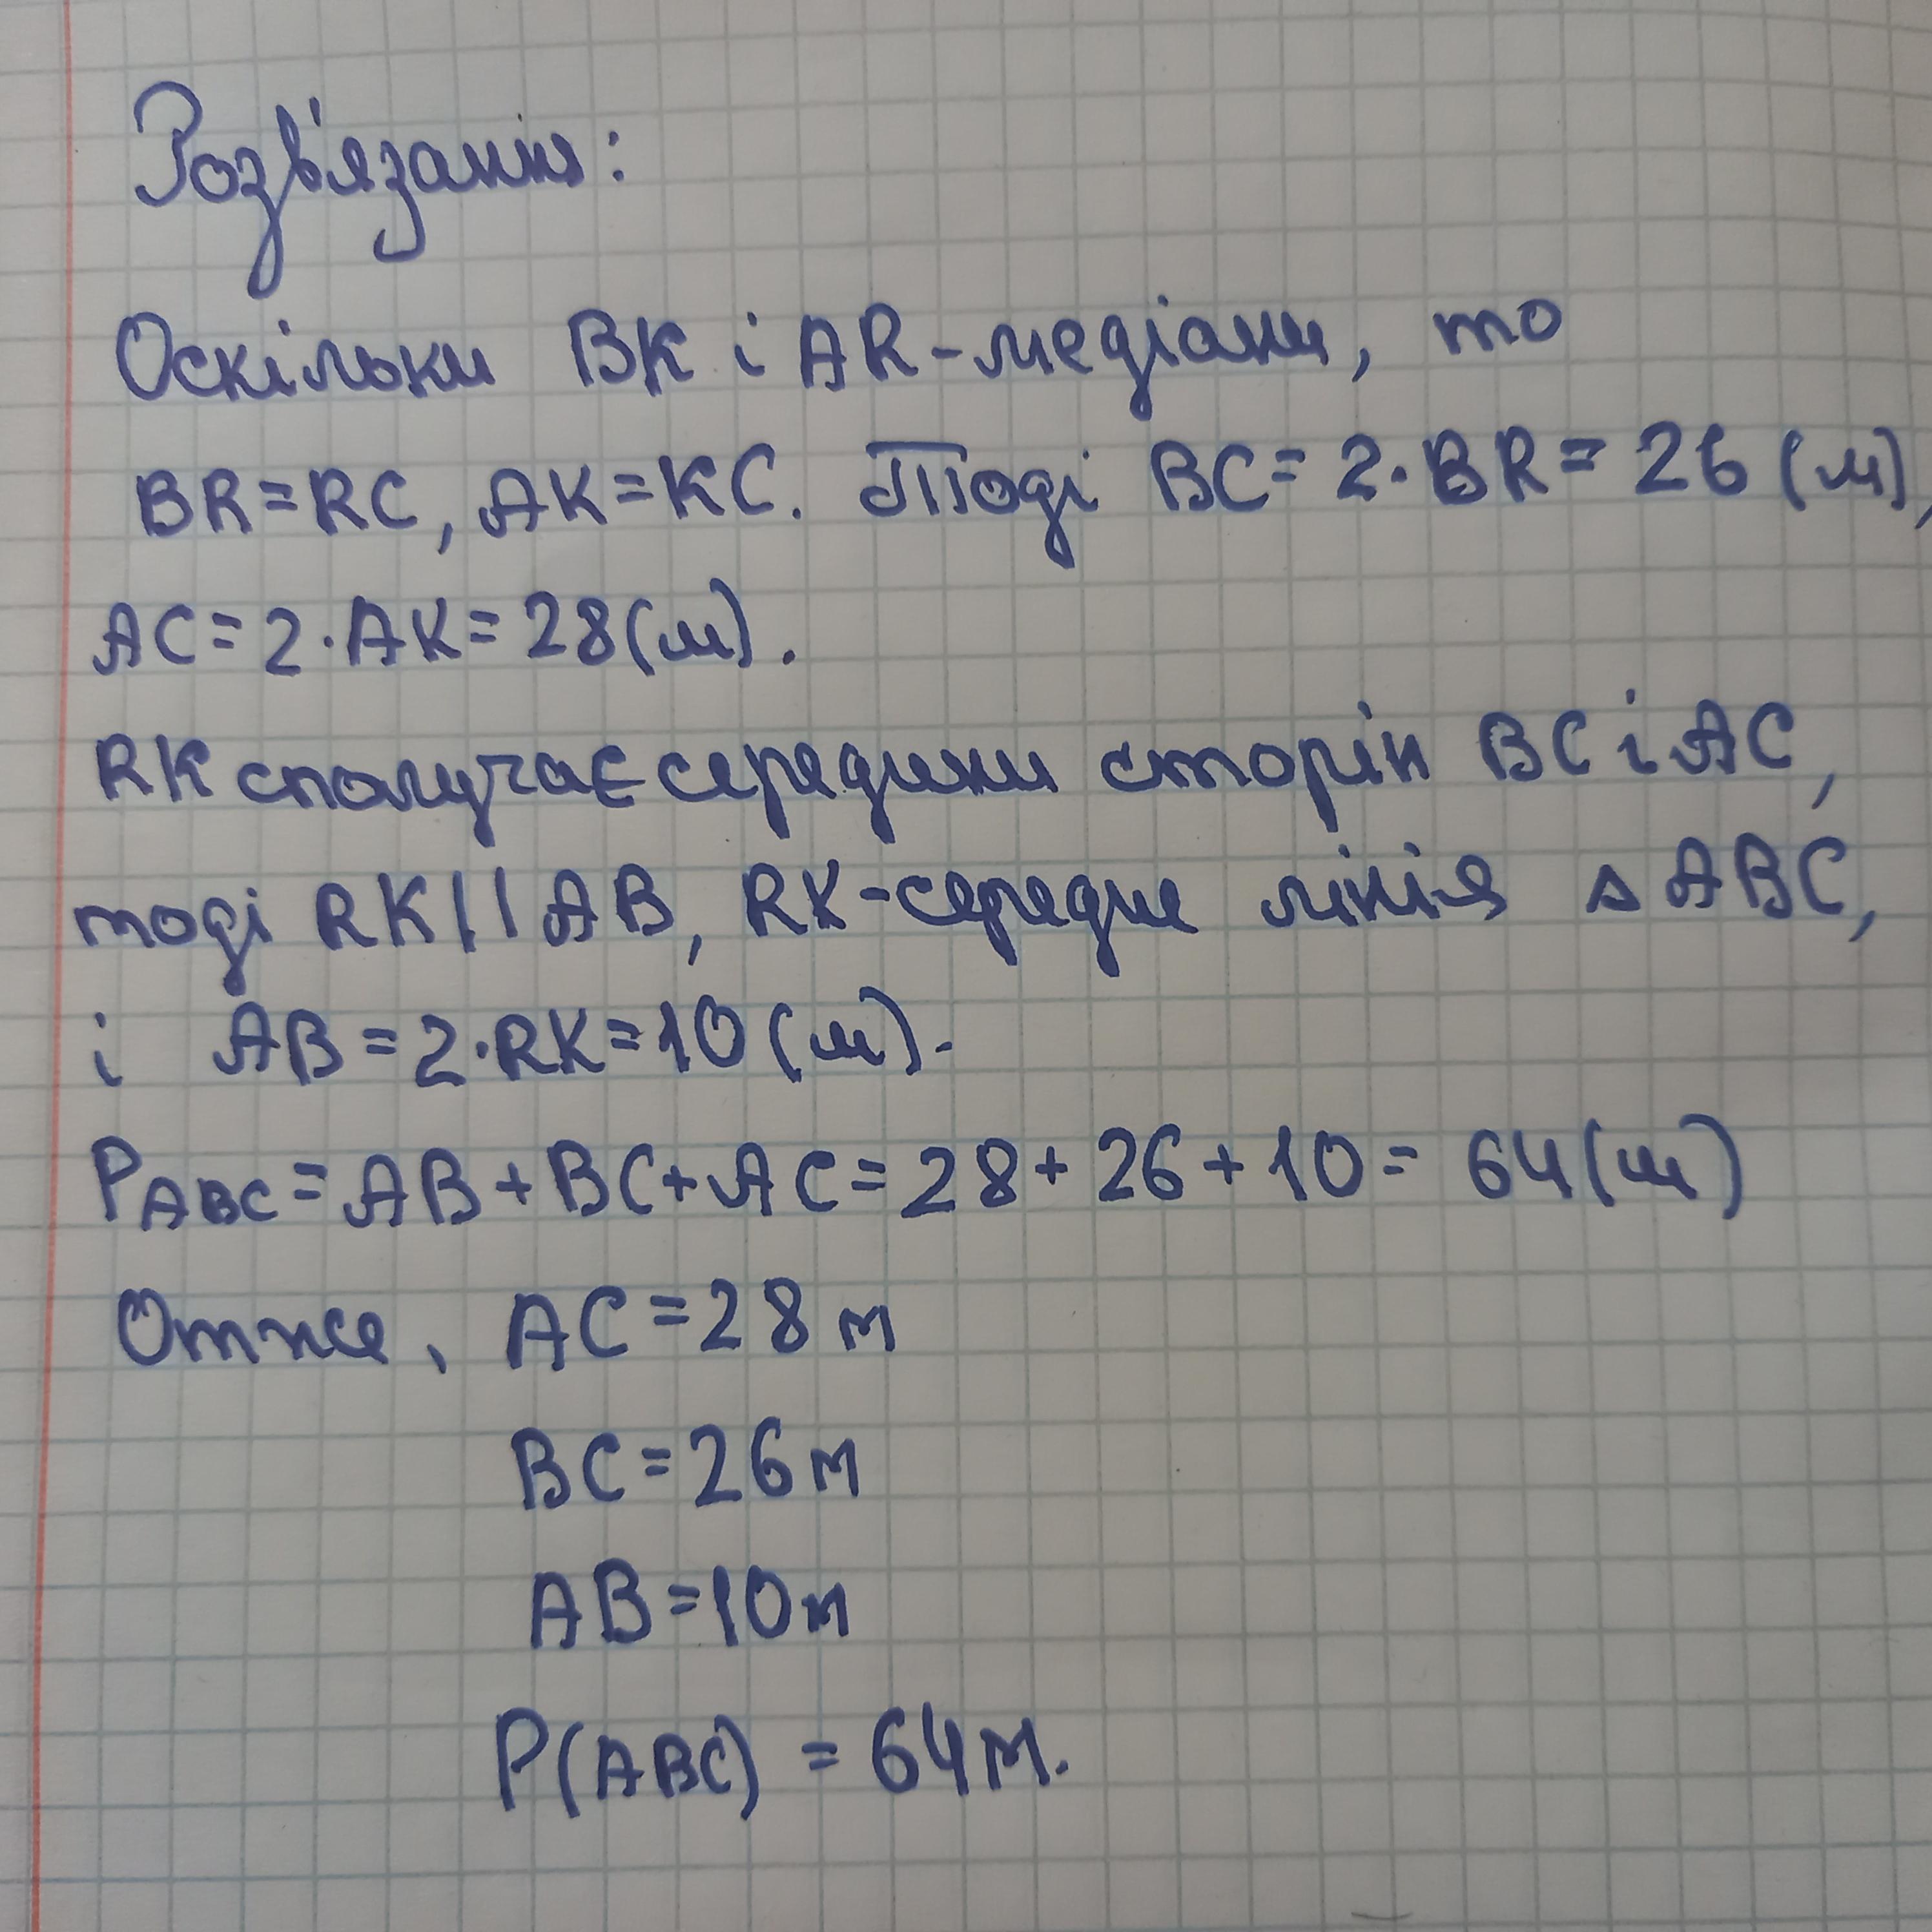 Розв'язання:
Оскільки BK і AR-медіани, то
BR=RC, AK=KC. Тоді BC=2·BR=26(м),
AC=2·AK=28(м).
RK сполучає середини сторін BC і AC,
тоді RK||AB, RK-середне лінія △ABC,
і AB=2·RK=10(м).
P_ABC=AB+BC+AC=28+26+10=64(м)
Отже, AC=28м
BC=26м
AB=10м
P(ABC)=64м.